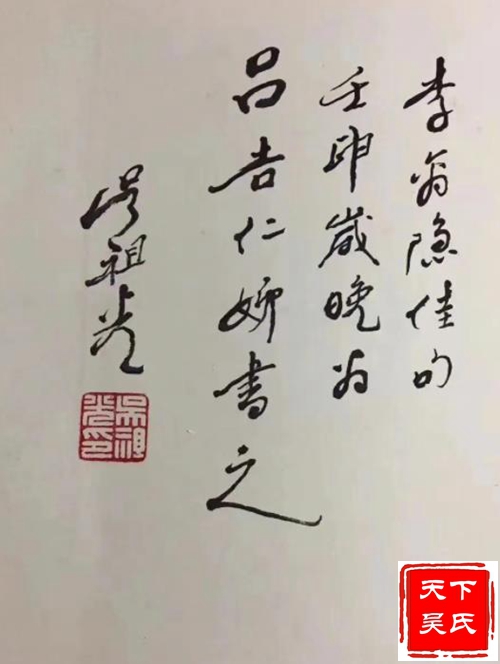 李商隐佳句
壬申歲晚为
吕吉仁姊書之
吴祖光
吴祖光印
天下
吴氏